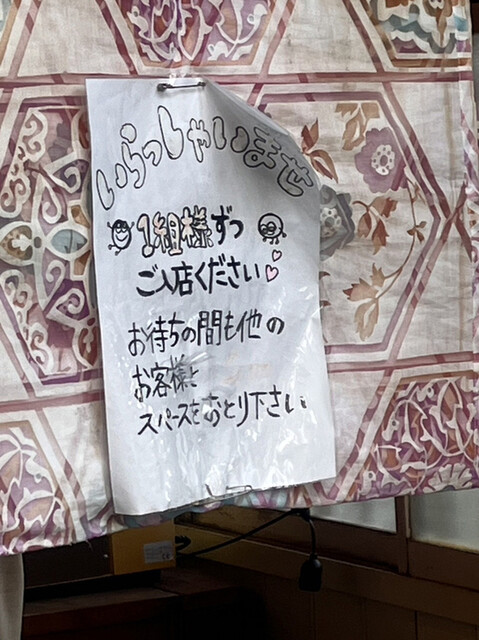 いらっしゃいませ
1組様ずつ
ご入店ください
お待ちの間も他の
お客様と
スペースをおとり下さい